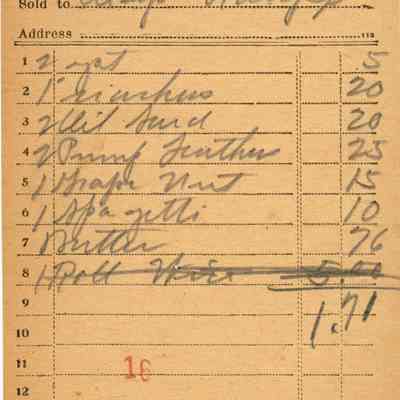 Sold to
Address
1 2 5
2 1 20
3 2 20
4 2 Pump Leathers 25
5 1 Grape Nut 15
6 1 Spagetti 10
7 Butter 76
8 1 Roll Wire 5.00
9 1.71
10
11 16
12